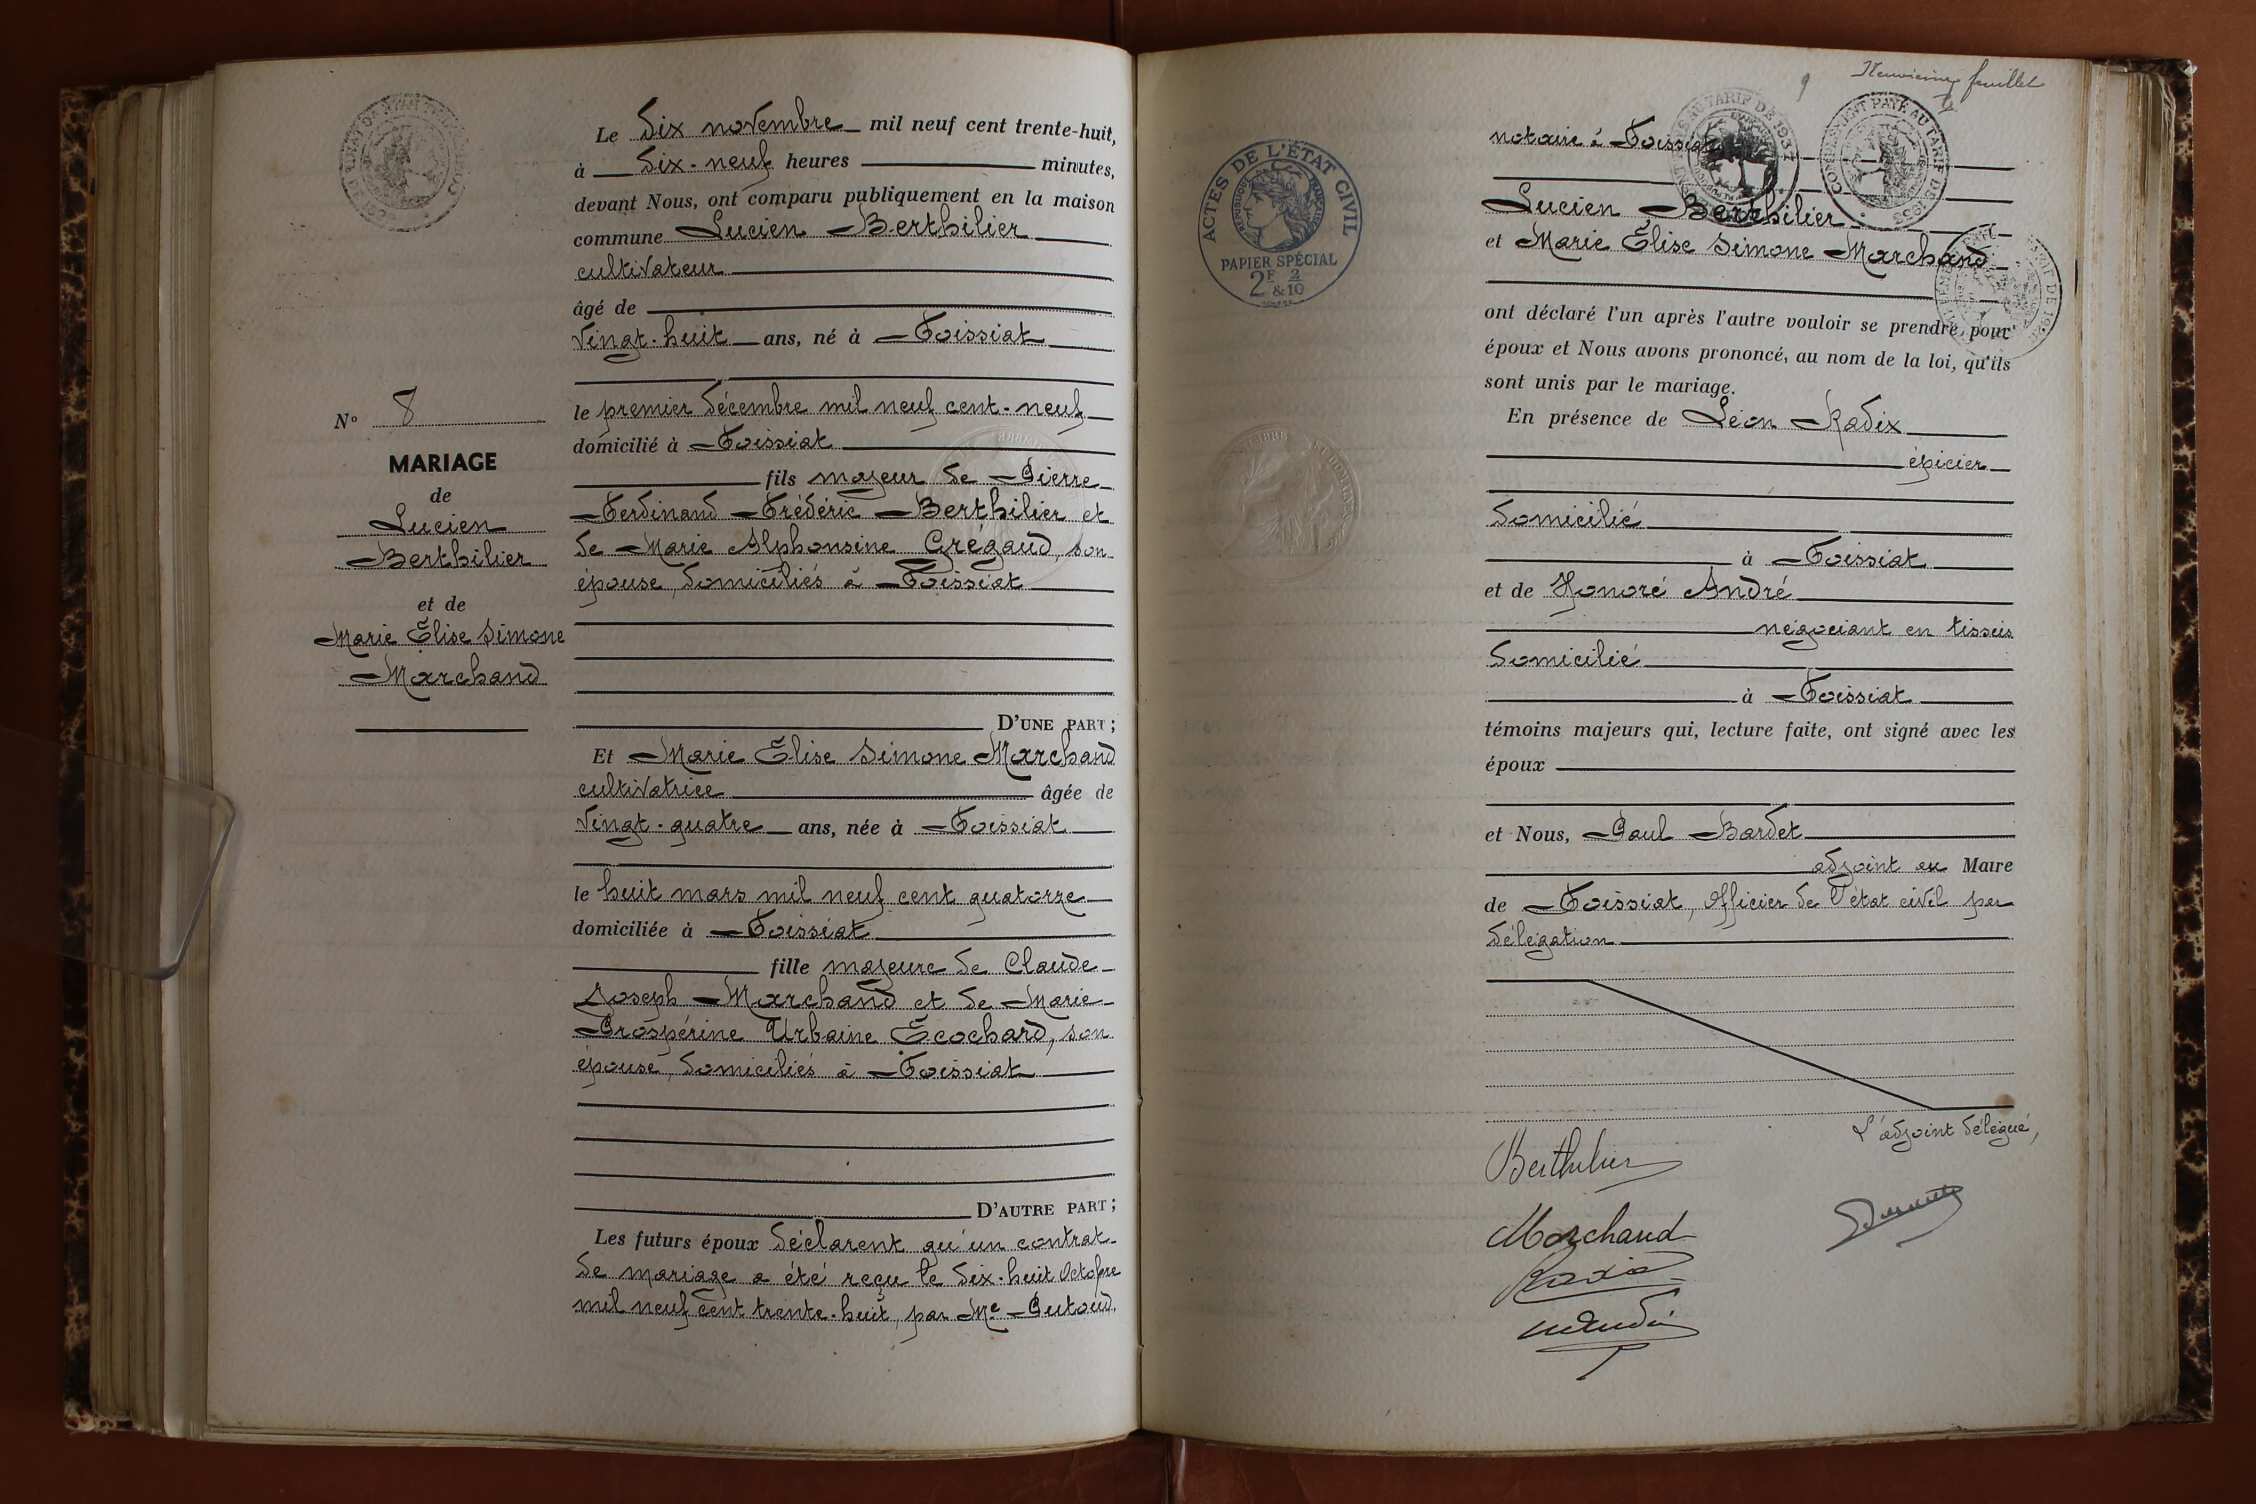 N° 8
MARIAGE
de
Lucien
Berthilier
et de
Marie Elise Simone
Marchand
Le six novembre mil neuf cent trente-huit,
à dix-neuf heures minutes,
devant Nous, ont comparu publiquement en la maison
commune Lucien Berthilier
cultivateur
âgé de
vingt-huit ans, né à Foissiat
le premier décembre mil neuf cent-neuf
domicilié à Foissiat
fils majeur de Pierre
Ferdinand Frédéric Berthilier et
de Marie Alphonsine Grégaud, son
épouse, domiciliés à Foissiat
D'UNE PART ;
Et Marie Elise Simone Marchand
cultivatrice âgée de
vingt-quatre ans, née à Foissiat
le huit mars mil neuf cent quatorze
domiciliée à Foissiat
fille majeure de Claude
Joseph Marchand et de Marie
Prospérine Urbaine Ecochard, son
épouse, domiciliés à Foissiat
D'AUTRE PART ;
Les futurs époux déclarent qu'un contrat
de mariage a été reçu le dix-huit Octobre
mil neuf cent trente-huit, par Me Putoud,
9 Neuvième feuillet
ACTES DE L'ÉTAT CIVIL
RÉPUBLIQUE FRANÇAISE
PAPIER SPÉCIAL
2F & 2/10
notaire à Foissiat
Lucien Berthilier
et Marie Elise Simone Marchand
ont déclaré l'un après l'autre vouloir se prendre pour
époux et Nous avons prononcé, au nom de la loi, qu'ils
sont unis par le mariage.
En présence de Léon Radix
épicier
domicilié
à Foissiat
et de Honoré André
négociant en tissus
domicilié
à Foissiat
témoins majeurs qui, lecture faite, ont signé avec les
époux
et Nous, Paul Bardet
adjoint au Maire
de Foissiat, Officier de l'état civil par
délégation
L'adjoint délégué,
Berthilier
Marchand
Radix